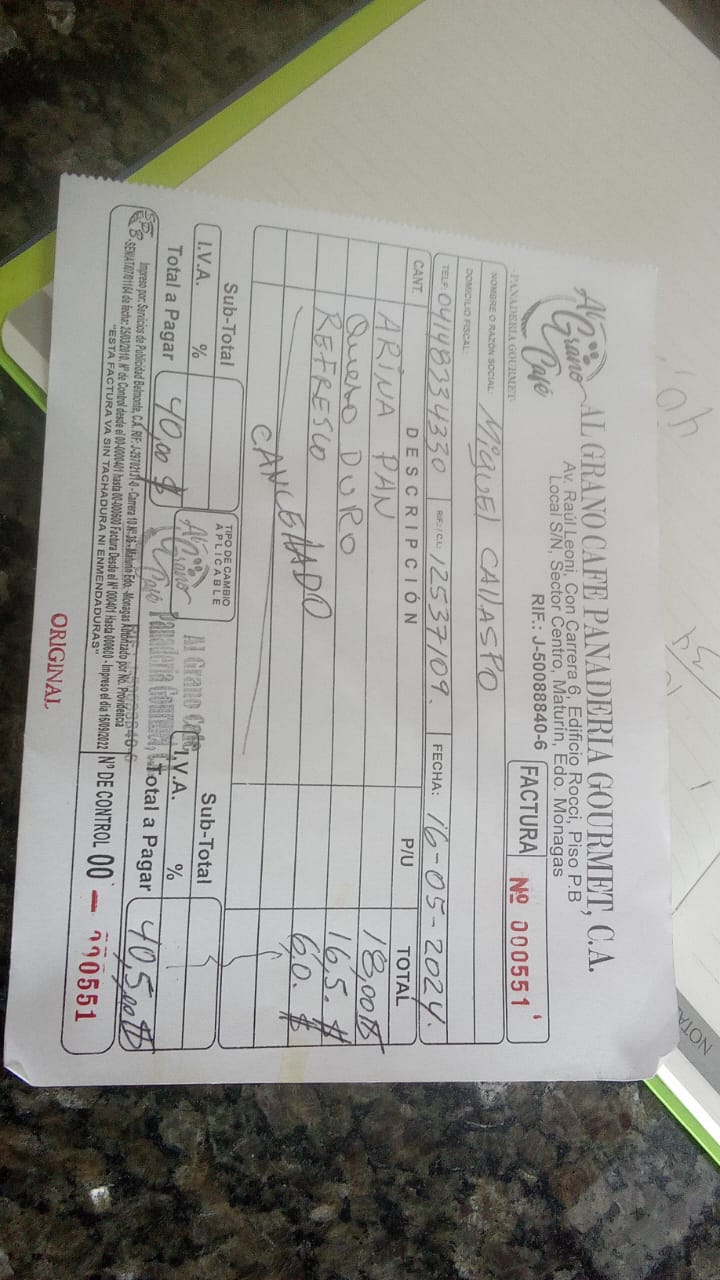 Al Grano Café
PANADERIA GOURMET
AL GRANO CAFE PANADERIA GOURMET, C.A.
Av. Raúl Leoni, Con Carrera 6, Edificio Rocci, Piso P.B
Local S/N, Sector Centro, Maturín, Edo. Monagas
RIF.: J-50088840-6
FACTURA Nº 000551
NOMBRE O RAZÓN SOCIAL: MIGUEL CALLASPO
DOMICILIO FISCAL:
TELF: 04148334330 RIF.: / C.I.: 12537109. FECHA: 16-05-2024.
CANT. DESCRIPCIÓN P/U TOTAL
ARINA PAN 18,00$
QUESO DURO 16,5. $
REFRESCO 6,0. $
CANCELADO
Sub-Total
I.V.A. %
Total a Pagar 40,00 $
TIPO DE CAMBIO
APLICABLE
Al Grano Café
Al Grano Café
Panadería Gourmet,
Sub-Total
I.V.A. %
Total a Pagar 40,5,00 $
Impreso por: Servicios de Publicidad Belmonte, C.A. RIF: J-29702131-0 - Carrera 10 Nº 36 - Maturín Edo. Monagas Autorizado por No. Providencia
SENIAT/07/01164 de fecha: 25/03/2010. Nº de Control desde el 00-000401 hasta 00-000600 Factura Desde el Nº 000401 Hasta 000600 - Impreso el día 16/09/2022
"ESTA FACTURA VA SIN TACHADURA NI ENMENDADURAS"
Nº DE CONTROL 00 - 000551
ORIGINAL
40,
NOTA